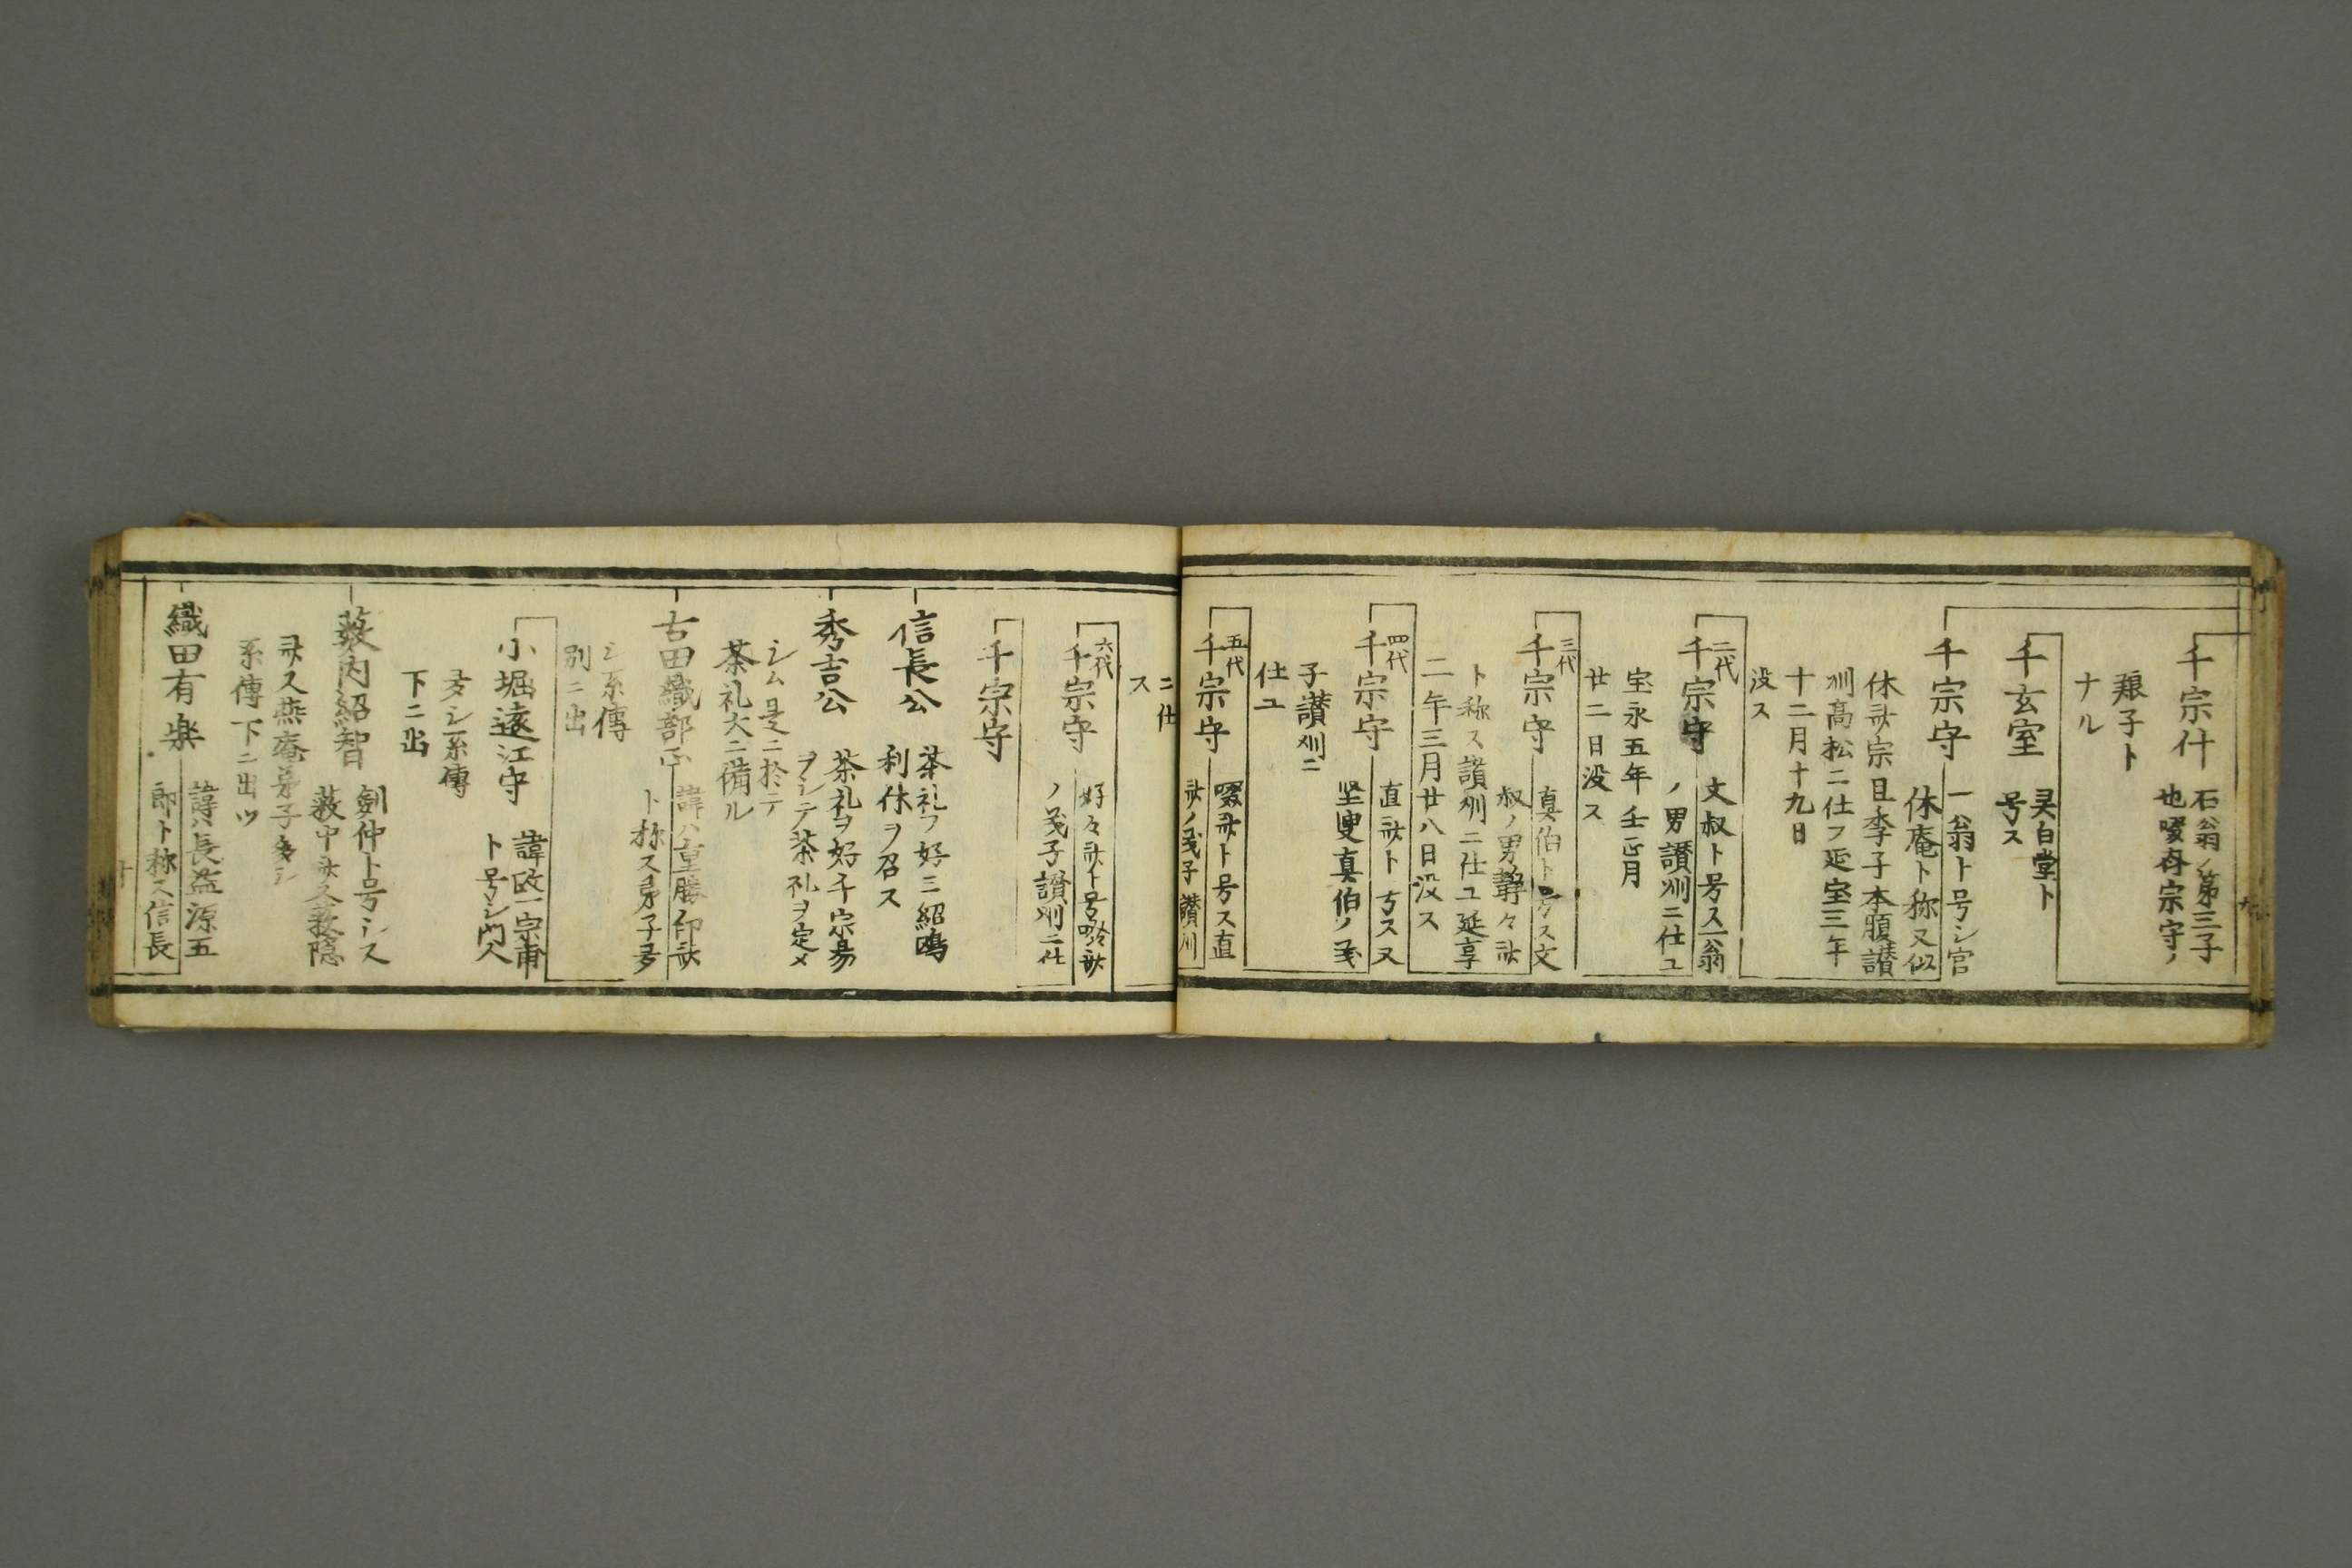 千宗什
石翁ノ第三子
也啜斉宗守ノ
猿子ト
ナル
千玄室
昊白堂ト
号ス
千宗守
一翁ト号シ官
休庵ト称又似
休斎宗旦李子本腹讃
州高松ニ仕フ延宝三年
十二月十九日
没ス
二代
千宗守
文叔ト号ス一翁
ノ男讃州ニ仕ユ
宝永五年壬正月
廿二日没ス
三代
千宗守
真伯ト号ス文
叔ノ男静々斎
ト称ス讃州ニ仕ユ延享
二年三月廿八日没ス
四代
千宗守
直斎ト号ス又
堅叟真伯ノ義
子讃州ニ
仕ユ
五代
千宗守
啜斎ト号ス直
斎ノ義子讃州
ニ仕
ス
六代
千宗守
好々斎ト号啜斎
ノ義子讃州ニ仕
千宗守
信長公
茶礼ヲ好三紹鴎
利休ヲ召ス
秀吉公
茶礼ヲ好千宗易
ヲシテ茶礼ヲ定メ
シム是ニ於テ
茶礼大ニ備ル
古田織部正
諱ハ重勝印斎
ト称ス弟子多
シ系傳
別ニ出
小堀遠江守
諱政一宗甫
ト号シ門人
多シ系傳
下ニ出
薮内紹智
劍仲ト号シス
薮中斎又薮隠
斎又燕庵弟子多シ
系傳下ニ出ツ
織田有楽
諱ハ長益源五
郎ト称ス信長